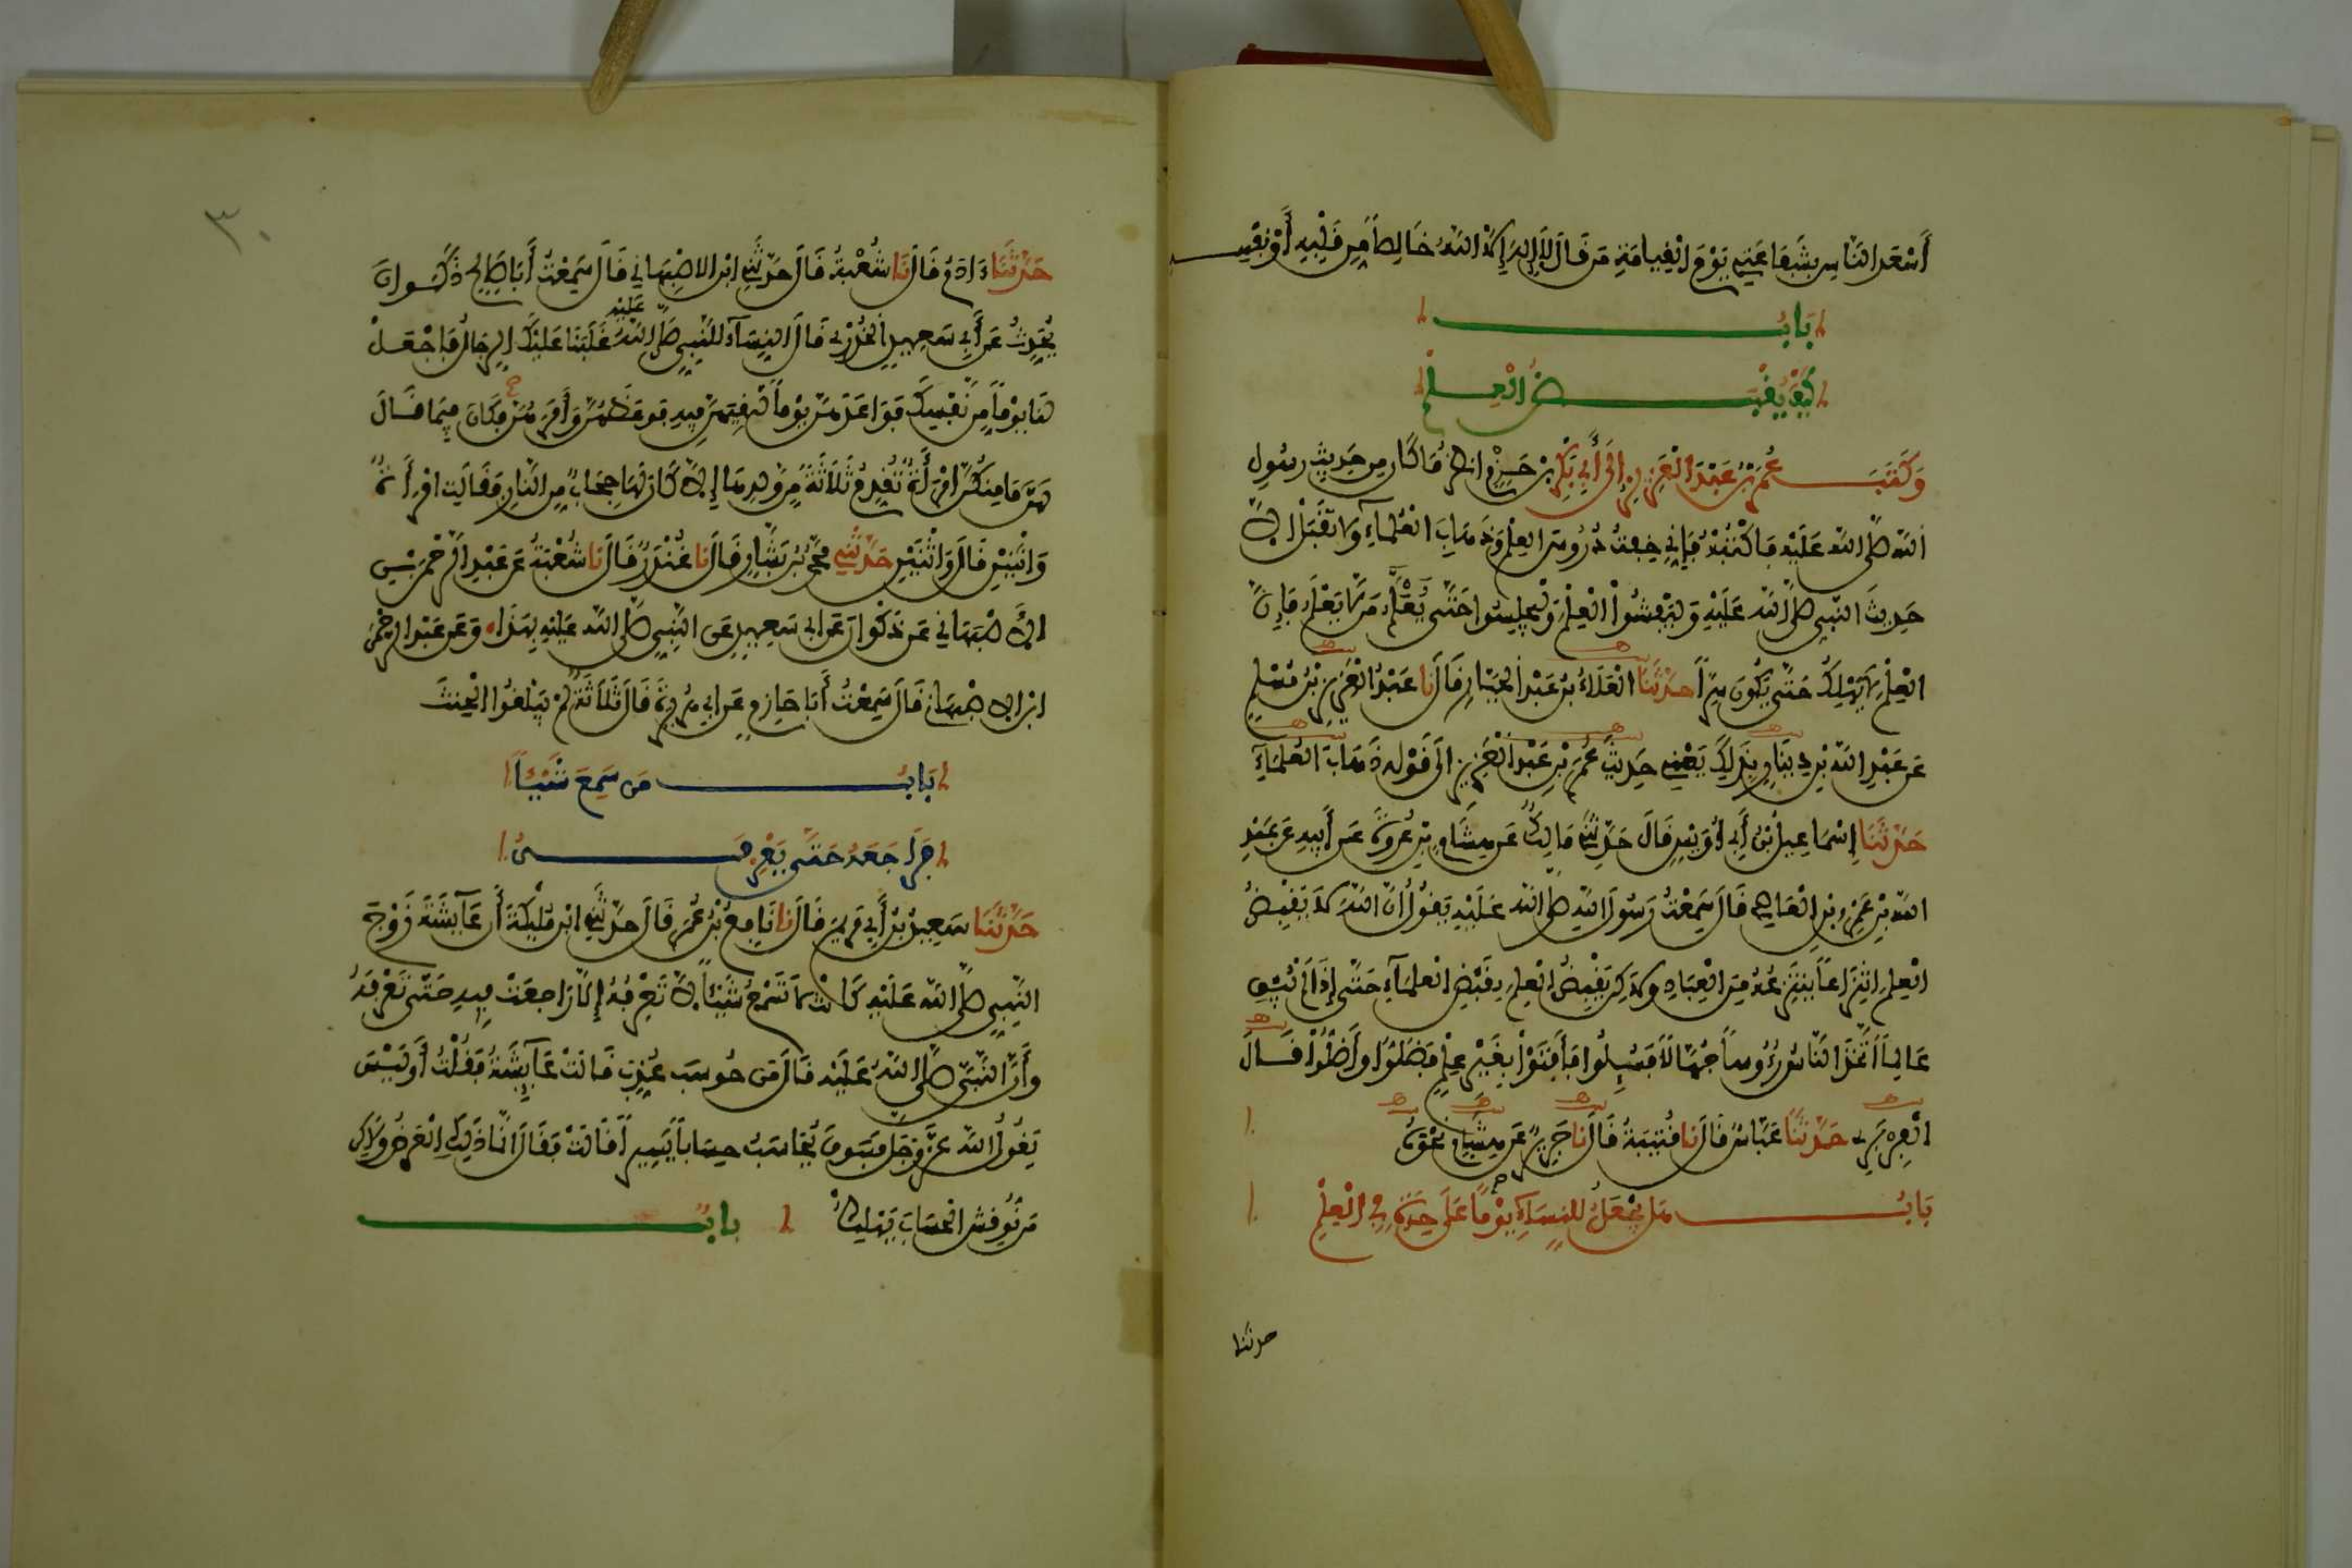 أَسْعَدَ النَّاسِ بِشَفَاعَتِي يَوْمَ الْقِيَامَةِ مَن قَالَ لَا إِلَهَ إِلَّا اللَّهُ خَالِصاً مِن قَلْبِهِ أَوْ نَفْسِهِ
بَابُ
كَيْفَ يُقْبَضُ الْعِلْمُ
وَكَتَبَ عُمَرُ بْنُ عَبْدِ الْعَزِيزِ إِلَى أَبِي بَكْرِ بْنِ حَزْمٍ انظُرْ مَا كَانَ مِن حَدِيثِ رسُولِ
اللَّهِ صلى الله عَلَيْهِ فَاكْتُبْهُ فَإِنِّي خِفْتُ دُرُوسَ العِلْمِ وَذَهَابَ الْعُلَمَاءِ وَلَا تَقْبَلْ إِلَّا
حَدِيثَ النَّبِيِّ صلى الله عَلَيْهِ وَلْيُفْشُوا الْعِلْمَ وَلْيَجْلِسُوا حَتَّى يُعَلَّمَ مَن لَا يَعْلَمُ فَإِنَّ
الْعِلْمَ لَا يَهْلِكُ حَتَّى يَكُونَ سِرّاً حَدَّثَنَا الْعَلَاءُ بْنُ عَبْدِ الْجَبَّارِ قَالَ نا عَبْدُ الْعَزِيزِ بْنُ مُسْلِمٍ
عَن عَبْدِ اللَّهِ بْنِ دِينَارٍ بِذَلِكَ يَعْنِي حَدِيثَ عُمَرَ بْنِ عَبْدِ الْعَزِيزِ إِلَى قَوْلِهِ ذَهَابَ الْعُلَمَاءِ
حَدَّثَنَا إِسْمَاعِيلُ بْنُ أَبِي أُوَيْسٍ قَالَ حَدَّثَنِي مَالِكٌ عَن هِشَامِ بْنِ عُرْوَةَ عَن أَبِيهِ عَن عَبْدِ
اللَّهِ بْنِ عَمْرِو بْنِ الْعَاصِي قَالَ سَمِعْتُ رَسُولَ اللَّهِ صلى الله عَلَيْهِ يَقُولُ إِنَّ اللَّهَ لَا يَقْبِضُ
الْعِلْمَ انْتِزَاعاً يَنْتَزِعُهُ مِنَ الْعِبَادِ وَلَكِن يَقْبِضُ الْعِلْمَ بِقَبْضِ الْعُلَمَاءِ حَتَّى إِذَا لَمْ يُبْقِ
عَالِماً اتَّخَذَ النَّاسُ رُؤُوساً جُهَّالًا فَسُئِلُوا فَأَفْتَوْا بِغَيْرِ عِلْمٍ فَضَلُّوا وَأَضَلُّوا قَالَ
الْفِرَبْرِي حَدَّثَنَا عَبَّاسٌ قَالَ نا قُتَيْبَةُ قَالَ نا جَرِيرٌ عَن هِشَامٍ نَحْوَهُ
بَابُ هَل يُجْعَلُ لِلنِّسَاءِ يَوْماً عَلَى حِدَةٍ فِي الْعِلْمِ
حدثنا
٣٠
حَدَّثَنَا ءَادَمُ قَالَ نَا شُعْبَةُ قَالَ حَدَّثَنِي ابْنُ الاصْبَهَانِي قَالَ سَمِعْتُ أَبَا صَالِحٍ ذَكْوَانَ
يُحَدِّثُ عَن أَبِي سَعِيدٍ الْخُدْرِي قَالَ النِّسَاءُ لِلنَّبِيِّ صلى الله عَلَيْهِ غَلَبَنَا عَلَيْكَ الرِّجَالُ فَاجْعَلْ
لَنَا يَوْماً مِن نَفْسِكَ فَوَاعَدَهُنَّ يَوْماً لَقِيَهُنَّ فِيهِ فَوَعَظَهُنَّ وَأَمَرَهُنَّ فَكَانَ فِيمَا قَالَ
لَهُنَّ مَا مِنكُنَّ امْرَأَةٌ تُقَدِّمُ ثَلَاثَةً مِن وَلَدِهَا إِلَّا كَانَ لَهَا حِجَابٌ مِنَ النَّارِ فَقَالَتِ امْرَأَةٌ
وَاثْنَيْنِ قَالَ وَاثْنَيْنِ حَدَّثَنِي مُحَمَّدُ بْنُ بَشَّارٍ قَالَ نا غُنْدَرٌ قَالَ نا شُعْبَةُ عَن عَبْدِ الرَّحْمَنِ بْنِ
الأَصْبَهَانِي عَن ذَكْوَانَ عَن أبِي سَعِيدٍ عَنِ النَّبِيِّ صلى الله عَلَيْهِ بِهَذَا وَعَن عَبْدِ الرحْمَنِ
ابْنِ الاصْبَهَانِي قَالَ سَمِعْتُ أَبَا حَازِمٍ عَن أبِي هُرَيْرَةَ قَالَ ثَلَاثَةً لَمْ يَبْلُغُوا الْحِنْثَ
بَابُ مَن سَمِعَ شَيْئاً
فَرَاجَعَهُ حَتَّى يَعْرِفَهُ
حَدَّثَنَا سَعِيدُ بْنُ أَبِي مَرْيَمَ قَالَ نا نَافِعُ بْنُ عُمَرَ قَالَ حَدَّثَنِي ابْنُ مُلَيْكَةَ أَنَّ عَائِشَةَ زَوْجَ
النَّبِيِّ صلى الله عَلَيْهِ كَانَتْ لَا تَسْمَعُ شَيْئاً لَا تَعْرِفُهُ إِلَّا رَاجَعَتْ فِيهِ حَتَّى تَعْرِفَهُ
وَأَنَّ النَّبِيَّ صلى الله عَلَيْهِ قَالَ مَن حُوسِبَ عُذِّبَ قَالَتْ عَائِشَةُ فَقُلْتُ أَوَلَيْسَ
يَقُولُ اللَّهُ عَزَّ وَجَلَّ فَسَوْفَ يُحَاسَبُ حِسَاباً يَسِيراً قَالَتْ فَقَالَ إِنَّمَا ذَلِكِ الْعَرْضُ وَلَكِن
مَن نُوقِشَ الْحِسَابَ يَهْلِكُ بابُ